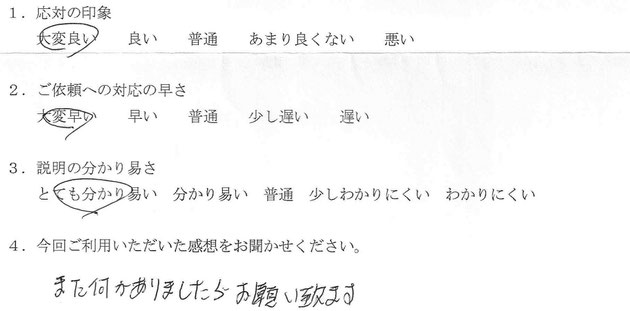 １．応対の印象
大変良い　良い　普通　あまり良くない　悪い
２．ご依頼への対応の早さ
大変早い　早い　普通　少し遅い　遅い
３．説明の分かり易さ
とても分かり易い　分かり易い　普通　少しわかりにくい　わかりにくい
４．今回ご利用いただいた感想をお聞かせください。
また何かありましたらお願い致ます